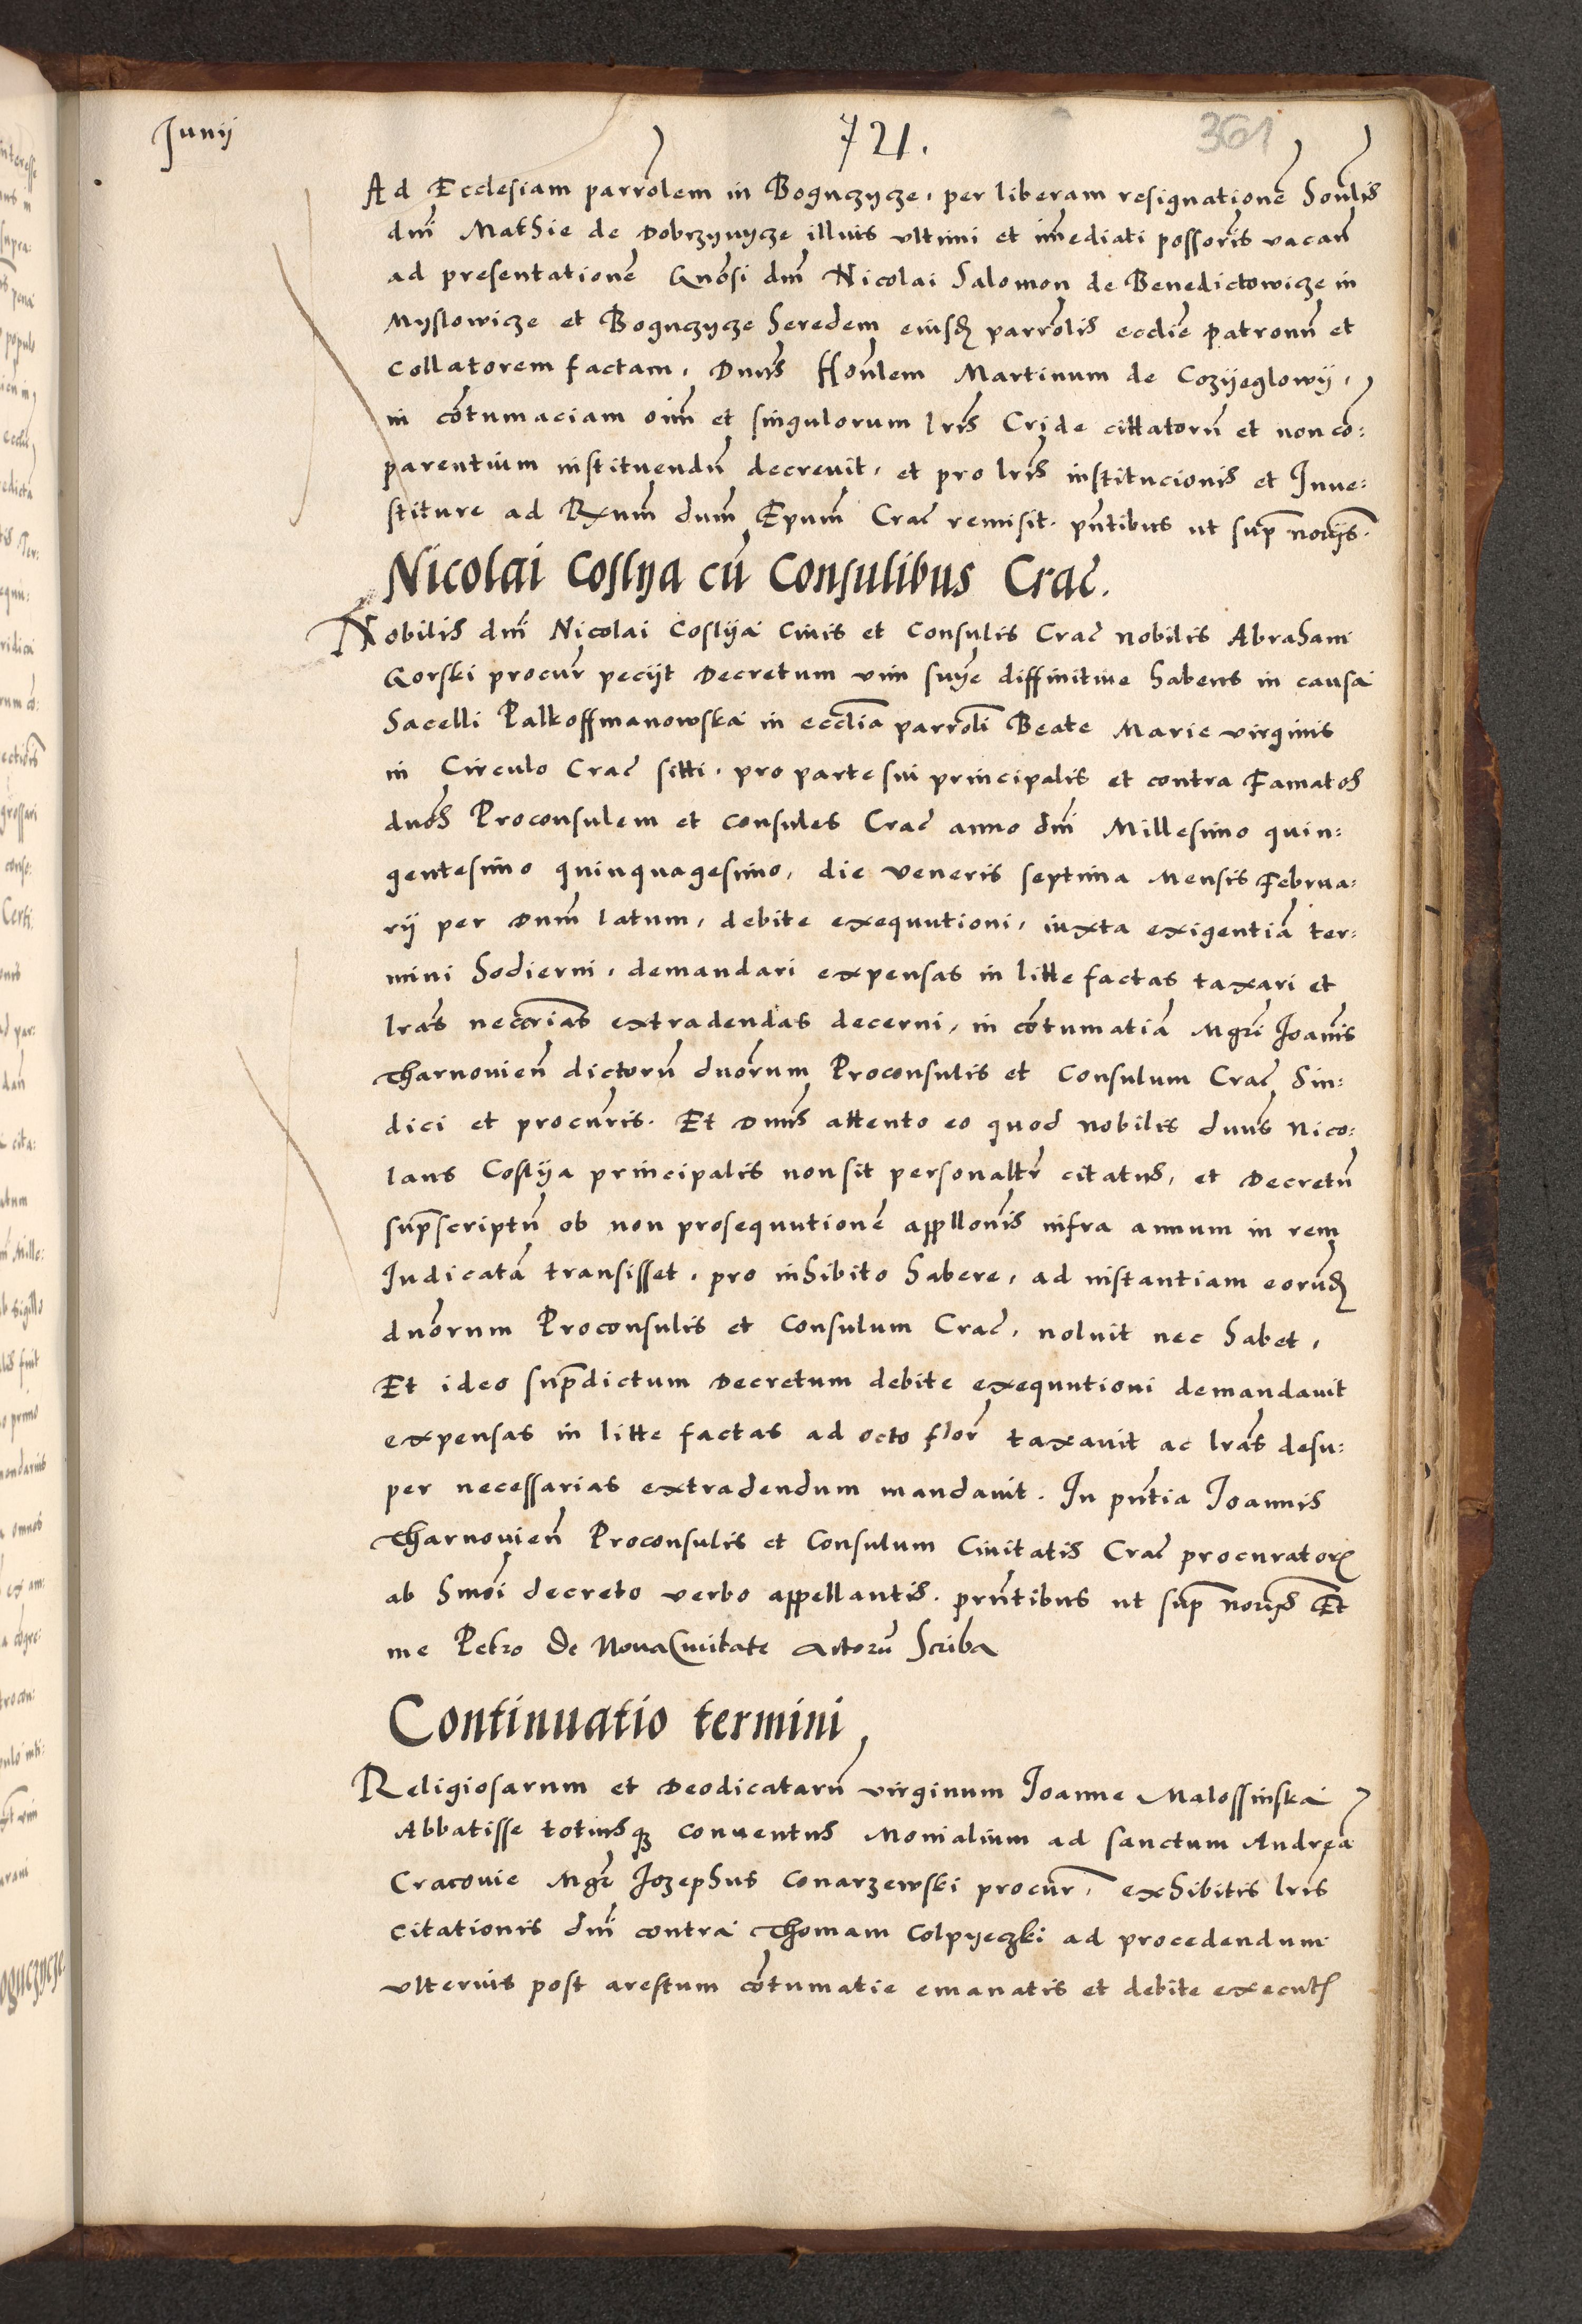 Junij
721.
361
Ad Ecclesiam parrōlem in Boguczycze, per liberam resignationē honłis
dni Mathie de Dobrzynycze illius vltimi et īmediati possoris vacan̄
ad presentationē Gnōsi dni Nicolai Salomon de Benedictowicze in
Myslowicze et Boguczycze heredem eiusd parrōlis ecclie patronū et
Collatorem factam, Dnūs Honłem Martinum de Cozyeglowij,
in cōtumaciam oīm et singulorum lrīs Cride cittatorū et non co:
parentium instituendū decreuit, et pro lrīs institucionis et Inue:
stiture ad Rxm̄ū dnm̄ Epum̄ Crac̄ remisit. pn̄tibus ut sup̄ norijs.
Nicolai Coslya cū Consulibus Crac̄.
Nobilis dni Nicolai Coslija Ciuis et Consulis Crac̄ nobilis Abrahami
Gorski procur̄ pecijt Decretum vim suye diffinitiue habens in causa
Sacelli Palkoffmanowska in ecclīa parrōli Beate Marie virginis
in Circulo Crac̄ sitti, pro parte sui principalis et contra Famatos
dnōs Proconsulem et Consules Crac̄ anno dni Millesimo quin:
gentesimo quinquagesimo, die Veneris septima Mensis Februa:
rij per Dnm̄ latum, debite exequutioni, iuxta exigentiā ter:
mini hodierni, demandari expensas in litte factas taxari et
lrās neccrīas extradendas decerni, in cōtumatiā Mgrī Joanīs
Tharnouien̄ dictorū dnōrum Proconsulis et Consulum Crac̄ Sin:
dici et procuris. Et Dnūs attento eo quod nobilis dnūs Nico:
laus Coslija principalis non sit personaltr̄ citatus, et Decretū
sup̄scriptū ob non prosequutionē appllonis infra annum in rem
Judicatā transisset, pro inhibito habere, ad instantiam eorūd
dnōrum Proconsulis et Consulum Crac̄, noluit nec habet,
Et ideo sup̄dictum Decretum debite exequutioni demandauit
expensas in litte factas ad octo flor̄ taxauit ac lrās desu:
per necessarias extradendum mandauit. In pn̄tia Joannis
Tharnouien̄ Proconsulis et Consulum Ciuitatis Crac̄ procurator
ab hmōi decreto verbo appellantis. prn̄tibus ut sup̄ norijs Et
me Petro de Noua Ciuitate Actorū Scriba
Continuatio termini
Religiosarum et Deodicatarū virginum Joanne Malossinska
Abbatisse totiusq Conuentus Monialium ad sanctum Andreā
Cracouie Mgr̄ Jozephus Conarzewski procur̄, exhibitis lrīs
citationis dni contra Thomam Colpyeczki ad procedendum
vlterius post arestum cōtumatie emanatis et debite executs